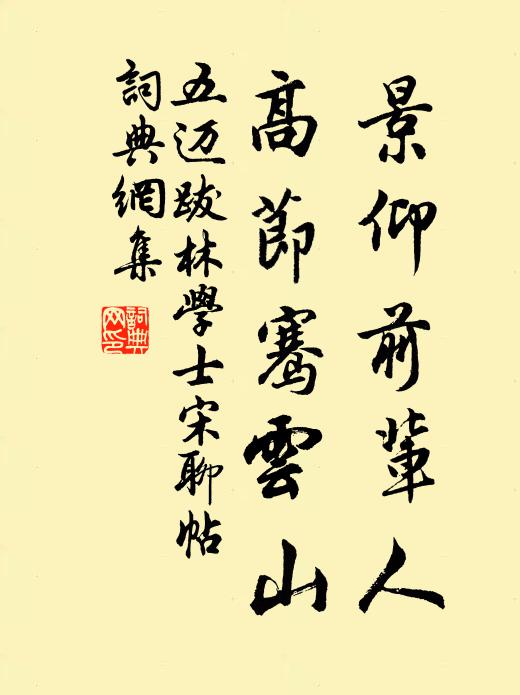 景仰前辈人
高节騫雲山
五迈跋林學士宋聊帖
詞典網集
詞典网印